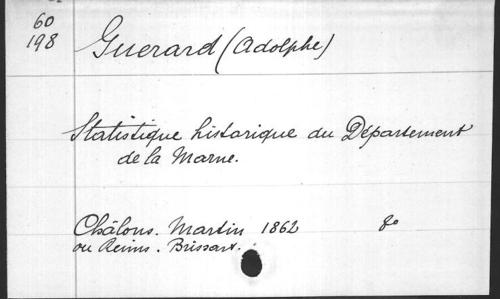 60
198
Guerard (Adolphe)
Statistique historique du Département
de la Marne.
Châlons. Martin 1862 8o
ou Reims. Brissart.